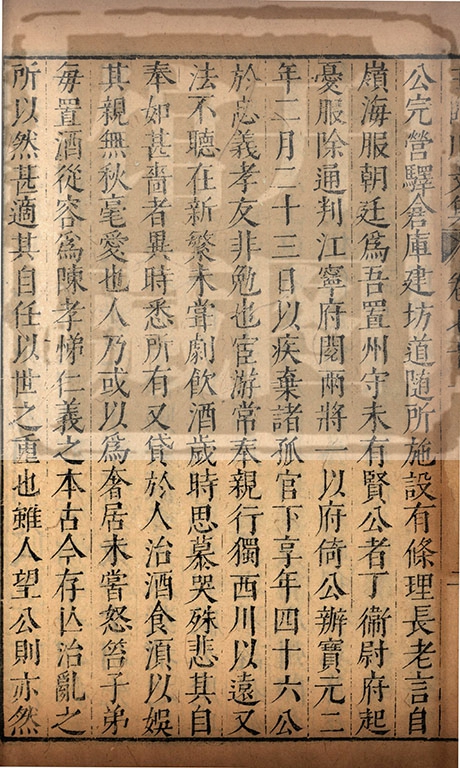 公完營驛倉庫建坊道隨所施設有條理長老言自
嶺海服朝廷爲吾置州守未有賢公者丁衞尉府起
憂服除通判江寧府閱兩將一以府倚公辦寶元二
年二月二十三日以疾棄諸孤官下享年四十六公
於忠義孝友非勉也宦游常奉親行獨西川以遠又
法不聽在新繁未嘗劇飲酒歲時思慕哭殊悲其自
奉如甚嗇者異時悉所有又貸於人治酒食須以娛
其親無秋毫愛也人乃或以爲奢居未嘗怒笞子弟
每置酒從容爲陳孝悌仁義之本古今存亡治亂之
所以然甚適其自任以世之重也雖人望公則亦然